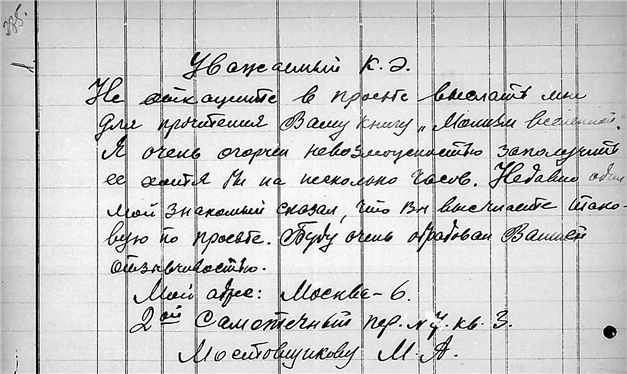 335.
Уважаемый К. Э.
Не откажите в просьбе выслать мне
для прочтения Вашу книгу „Монизм вселенной".
Я очень огорчен невозможностью заполучить
ее хотя бы на несколько часов. Недавно один
мой знакомый сказал, что Вы высылаете тако-
вую по просьбе. Буду очень обрадован Вашей
отзывчивостью.
Мой адрес: Москва-6.
2ой Самотечный пер. №7. кв. 3.
Мостовщикову М. А.